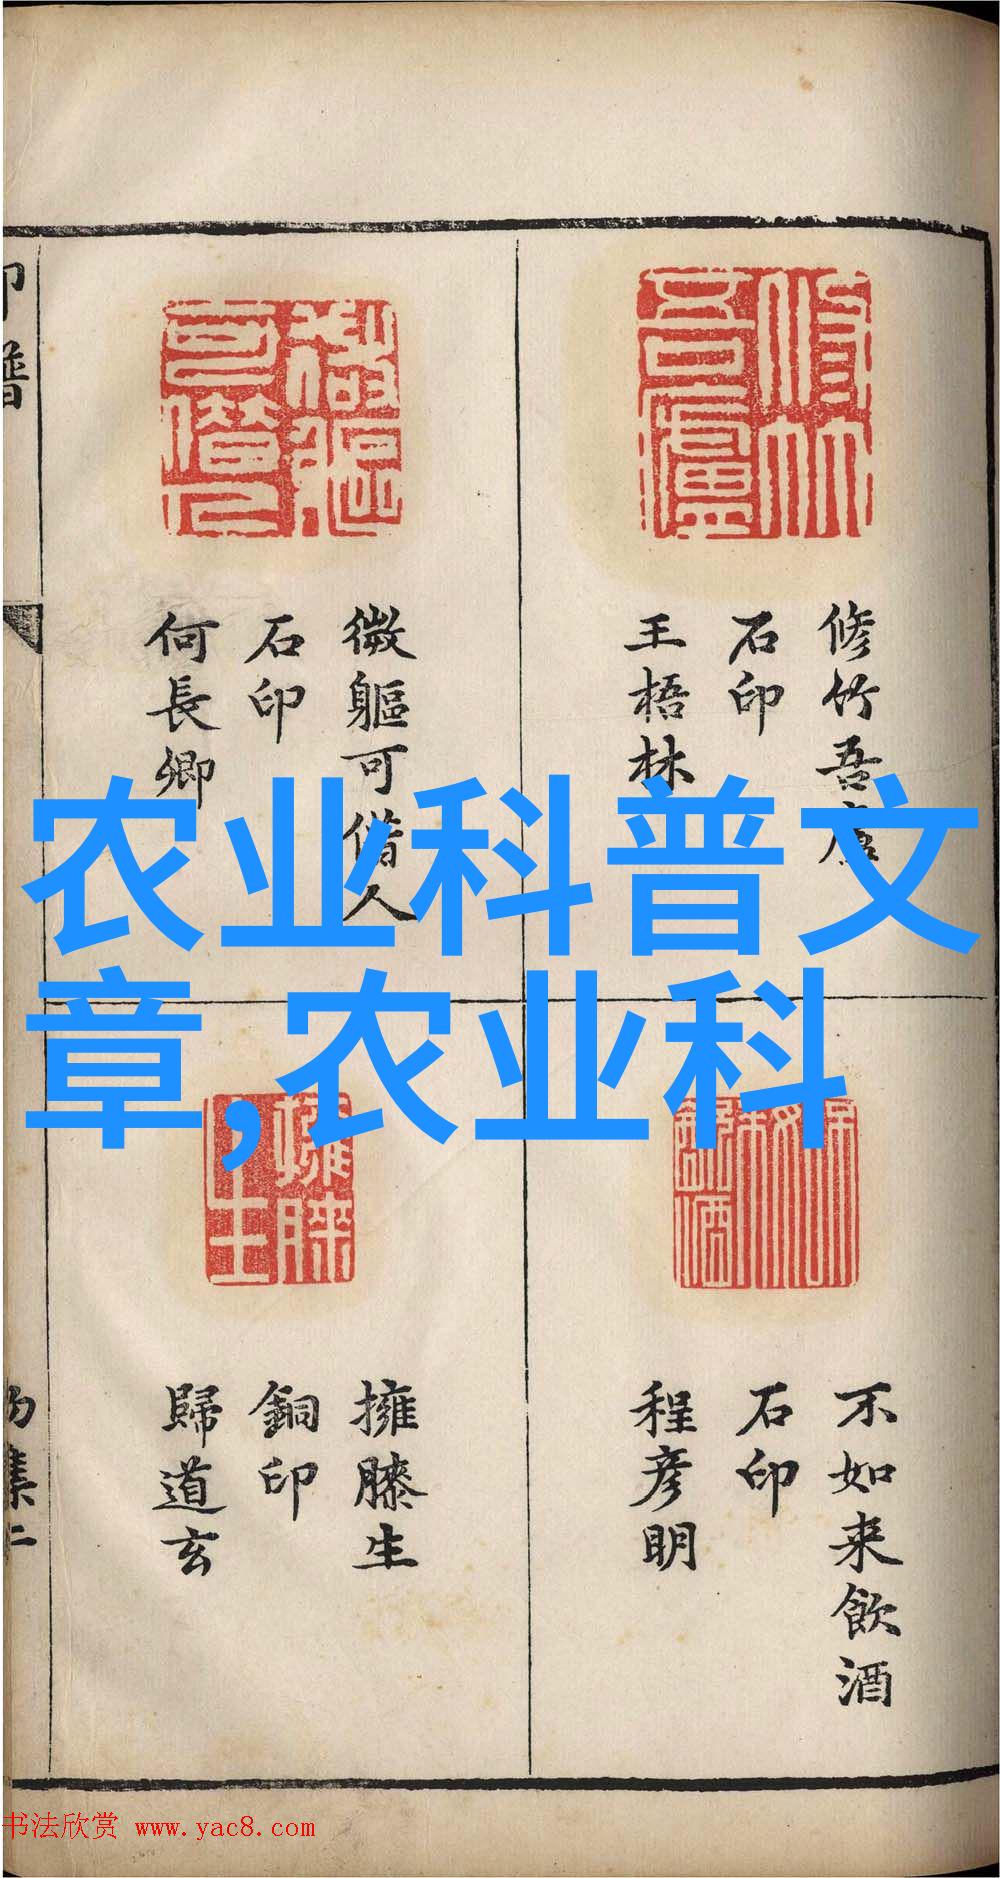 修竹吾廬
石印
王梧林
微軀可借人
石印
何長卿
农业科普文
章,农业科
不如来飲酒
石印
程彦明
擁膝生
銅印
歸道玄
印譜
集二
书法欣赏 www.yac8.com